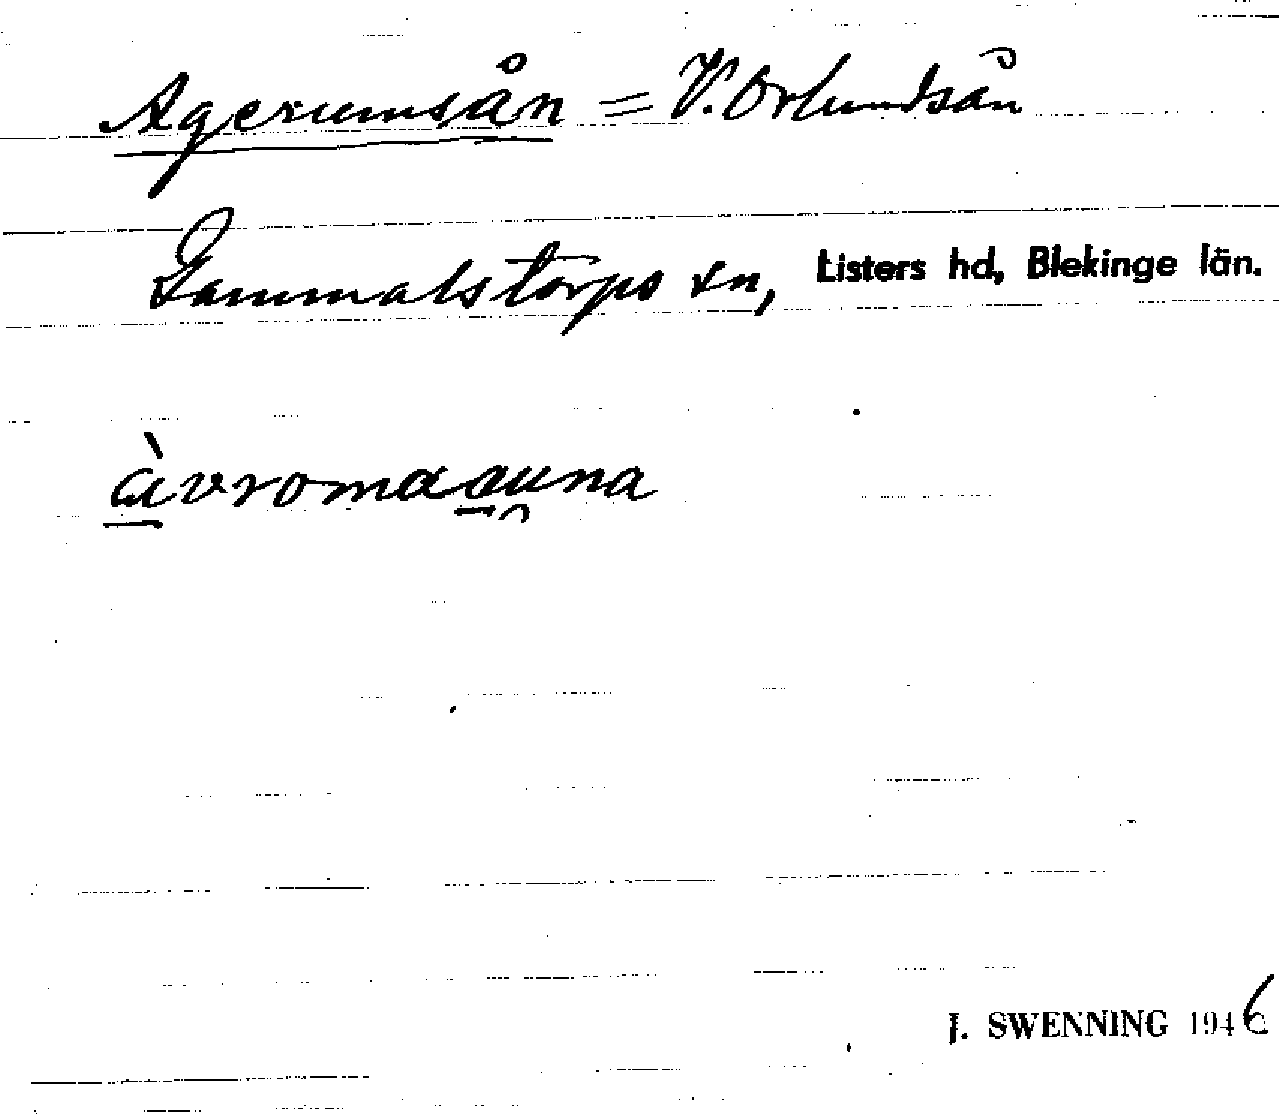 Agerumsån = V. Orlundsån
Gammalstorps sn, Listers hd, Blekinge län.
àvromaauna
J. SWENNING 1946